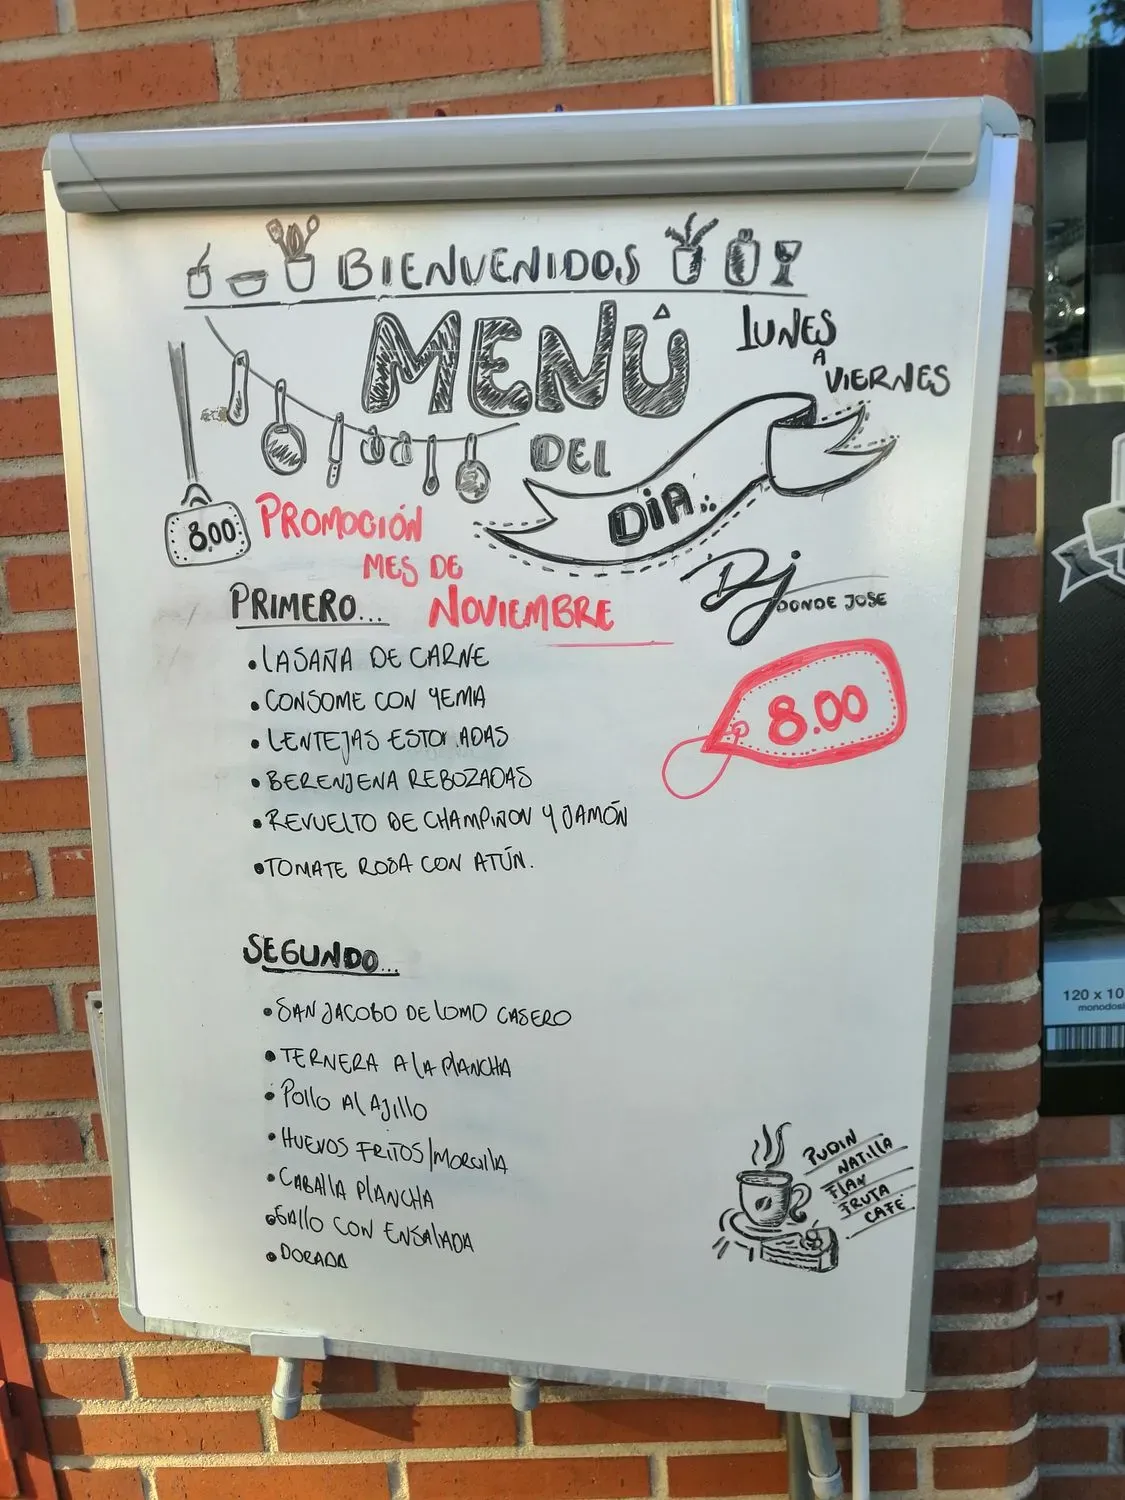 BIENVENIDOS
MENÚ
LUNES
A
VIERNES
DEL
DÍA..
8.00
PROMOCIÓN
MES DE
NOVIEMBRE
DJ
DONDE JOSE
8.00
PRIMERO...
• LASAÑA DE CARNE
• CONSOME CON YEMA
• LENTEJAS ESTOFADAS
• BERENJENA REBOZADAS
• REVUELTO DE CHAMPIÑON Y JAMÓN
• TOMATE ROSA CON ATÚN.
SEGUNDO...
• SAN JACOBO DE LOMO CASERO
• TERNERA A LA PLANCHA
• POLLO AL AJILLO
• HUEVOS FRITOS/MORCILLA
• CABALLA PLANCHA
• GALLO CON ENSALADA
• DORADA
PUDIN
NATILLA
FLAN
FRUTA
CAFÉ
120 x 10
monodosi